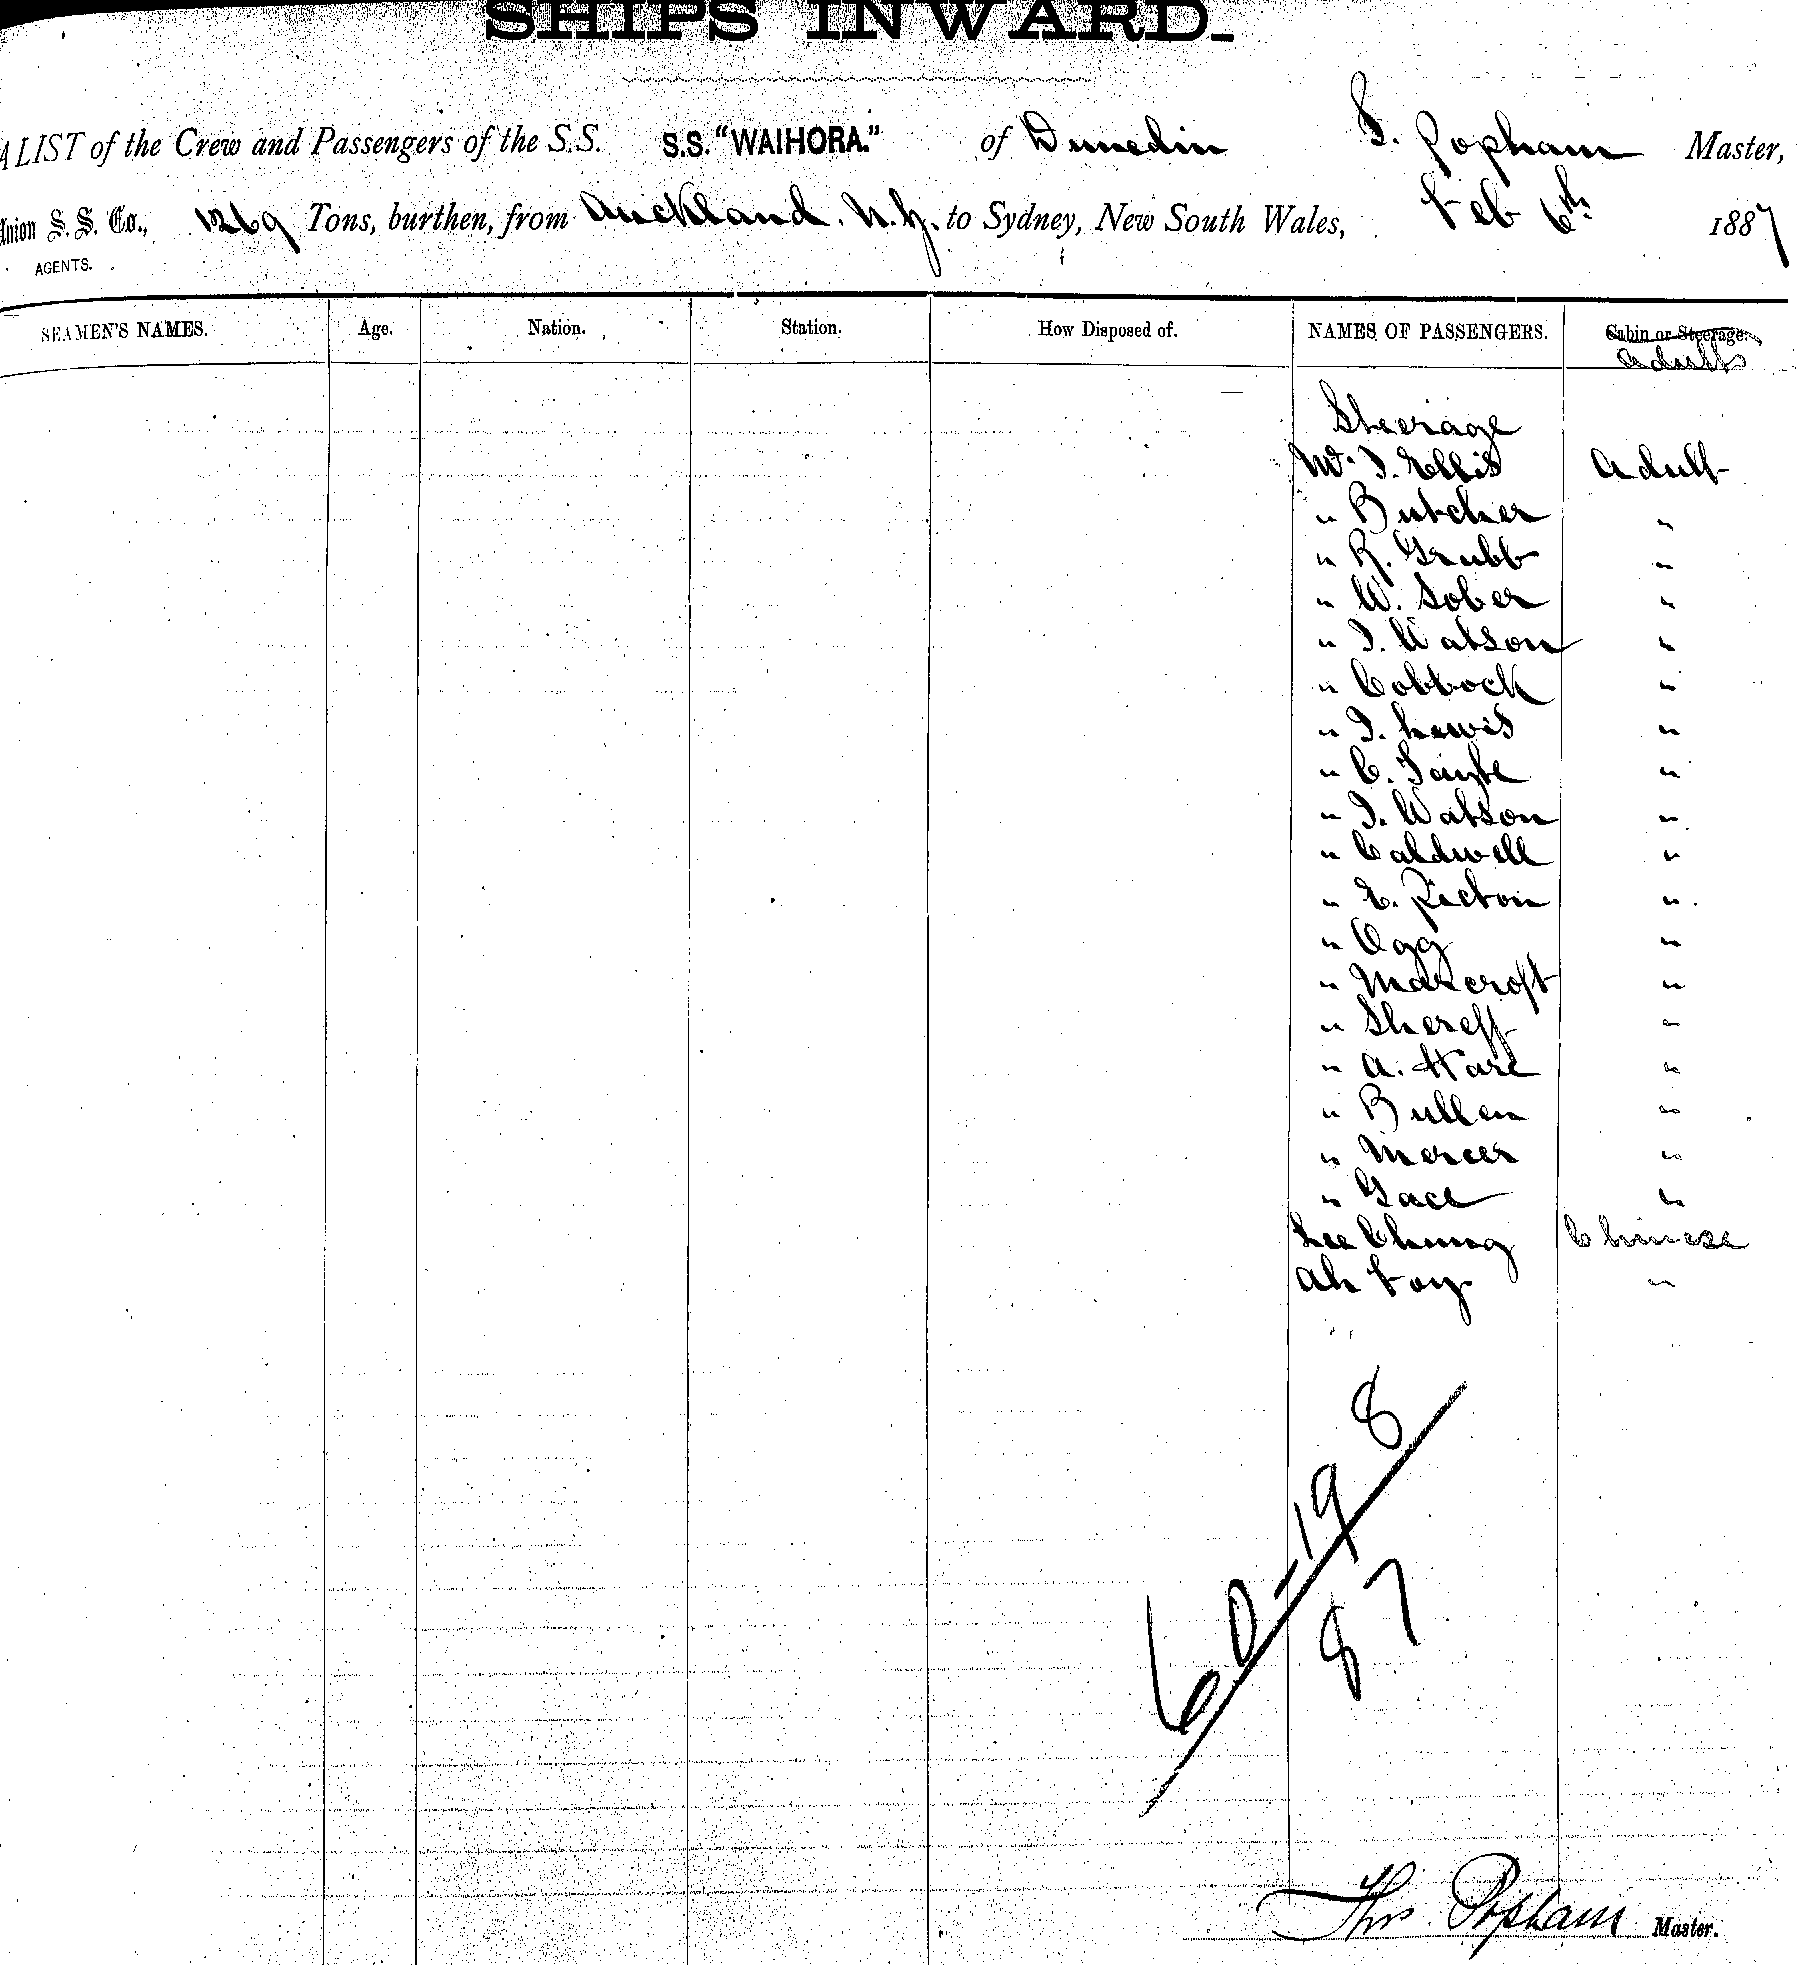 SHIPS INWARD.
A LIST of the Crew and Passengers of the S.S. S.S. "WAIHORA." of Dunedin T. Popham Master,
Union S. S. Co., 1269 Tons, burthen, from Auckland. N.Z. to Sydney, New South Wales, Feb 6th 1887
AGENTS.
SEAMEN'S NAMES. Age. Nation. Station. How Disposed of. NAMES OF PASSENGERS. Cabin or Steerage.
Adults
Steerage
Mr. J. Ellis Adult
" Butcher "
" R. Grubb "
" W. Sober "
" J. Watson "
" Cobbock "
" J. Lewis "
" C. "
" J. Watson "
" Caldwell "
" E. Picton "
" Ogg "
" Marcroft "
" Shereff "
" A. Hare "
" Bullen "
" Mercer "
" Gace "
Lee Chung Chinese
Ah Foy "
60-19 8
87
Thos Popham Master.